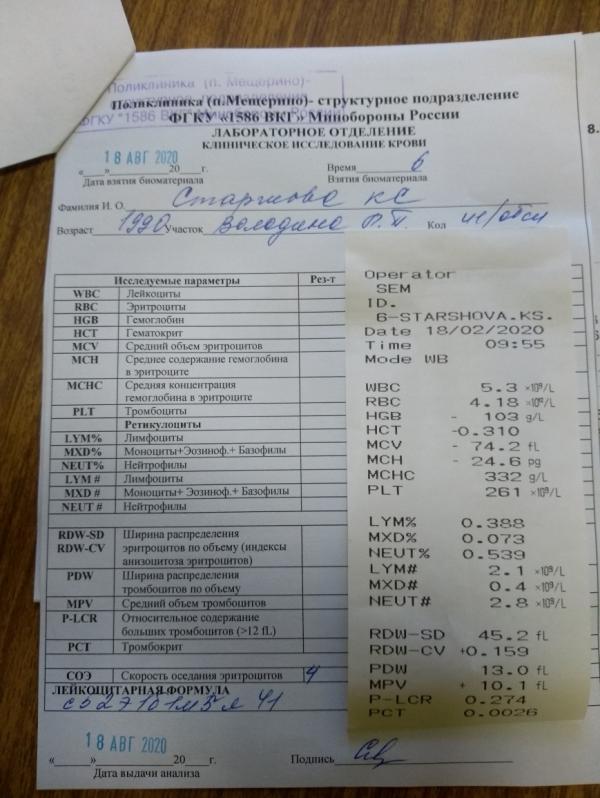 Поликлиника (п. Мещерино)-
ФГКУ "1586 ВКГ" Минобороны России
Поликлиника (п.Мещерино)- структурное подразделение
ФГКУ «1586 ВКГ» Минобороны России
ЛАБОРАТОРНОЕ ОТДЕЛЕНИЕ
КЛИНИЧЕСКОЕ ИССЛЕДОВАНИЕ КРОВИ
«___» 18 АВГ 2020 20___г. Время 6
Дата взятия биоматериала Взятия биоматериала
Фамилия И. О. Старшова КС
Возраст 1990 Участок Володина Р.П. Кол
Исследуемые параметры Рез-т
WBC Лейкоциты
RBC Эритроциты
HGB Гемоглобин
HCT Гематокрит
MCV Средний объем эритроцитов
MCH Среднее содержание гемоглобина
в эритроците
MCHC Средняя концентрация
гемоглобина в эритроците
PLT Тромбоциты
Ретикулоциты
LYM% Лимфоциты
MXD% Моноциты+Эозиноф.+ Базофилы
NEUT% Нейтрофилы
LYM # Лимфоциты
MXD # Моноциты+ Эозиноф.+ Базофилы
NEUT # Нейтрофилы
RDW-SD Ширина распределения
RDW-CV эритроцитов по объему (индексы
анизоцитоза эритроцитов)
PDW Ширина распределения
тромбоцитов по объему
MPV Средний объем тромбоцитов
P-LCR Относительное содержание
больших тромбоцитов (>12 fL)
PCT Тромбокрит
СОЭ Скорость оседания эритроцитов 4
ЛЕЙКОЦИТАРНАЯ ФОРМУЛА
«___» 18 АВГ 2020 20___г. Подпись
Дата выдачи анализа
Operator
SEM
ID.
6-STARSHOVA.KS.
Date 18/02/2020
Time 09:55
Mode WB
WBC 5.3 ×10⁹/L
RBC 4.18 ×10¹²/L
HGB - 103 g/L
HCT -0.310
MCV - 74.2 fL
MCH - 24.6 pg
MCHC 332 g/L
PLT 261 ×10⁹/L
LYM% 0.388
MXD% 0.073
NEUT% 0.539
LYM# 2.1 ×10⁹/L
MXD# 0.4 ×10⁹/L
NEUT# 2.8 ×10⁹/L
RDW-SD 45.2 fL
RDW-CV +0.159
PDW 13.0 fL
MPV + 10.1 fL
P-LCR 0.274
PCT 0.0026
8.